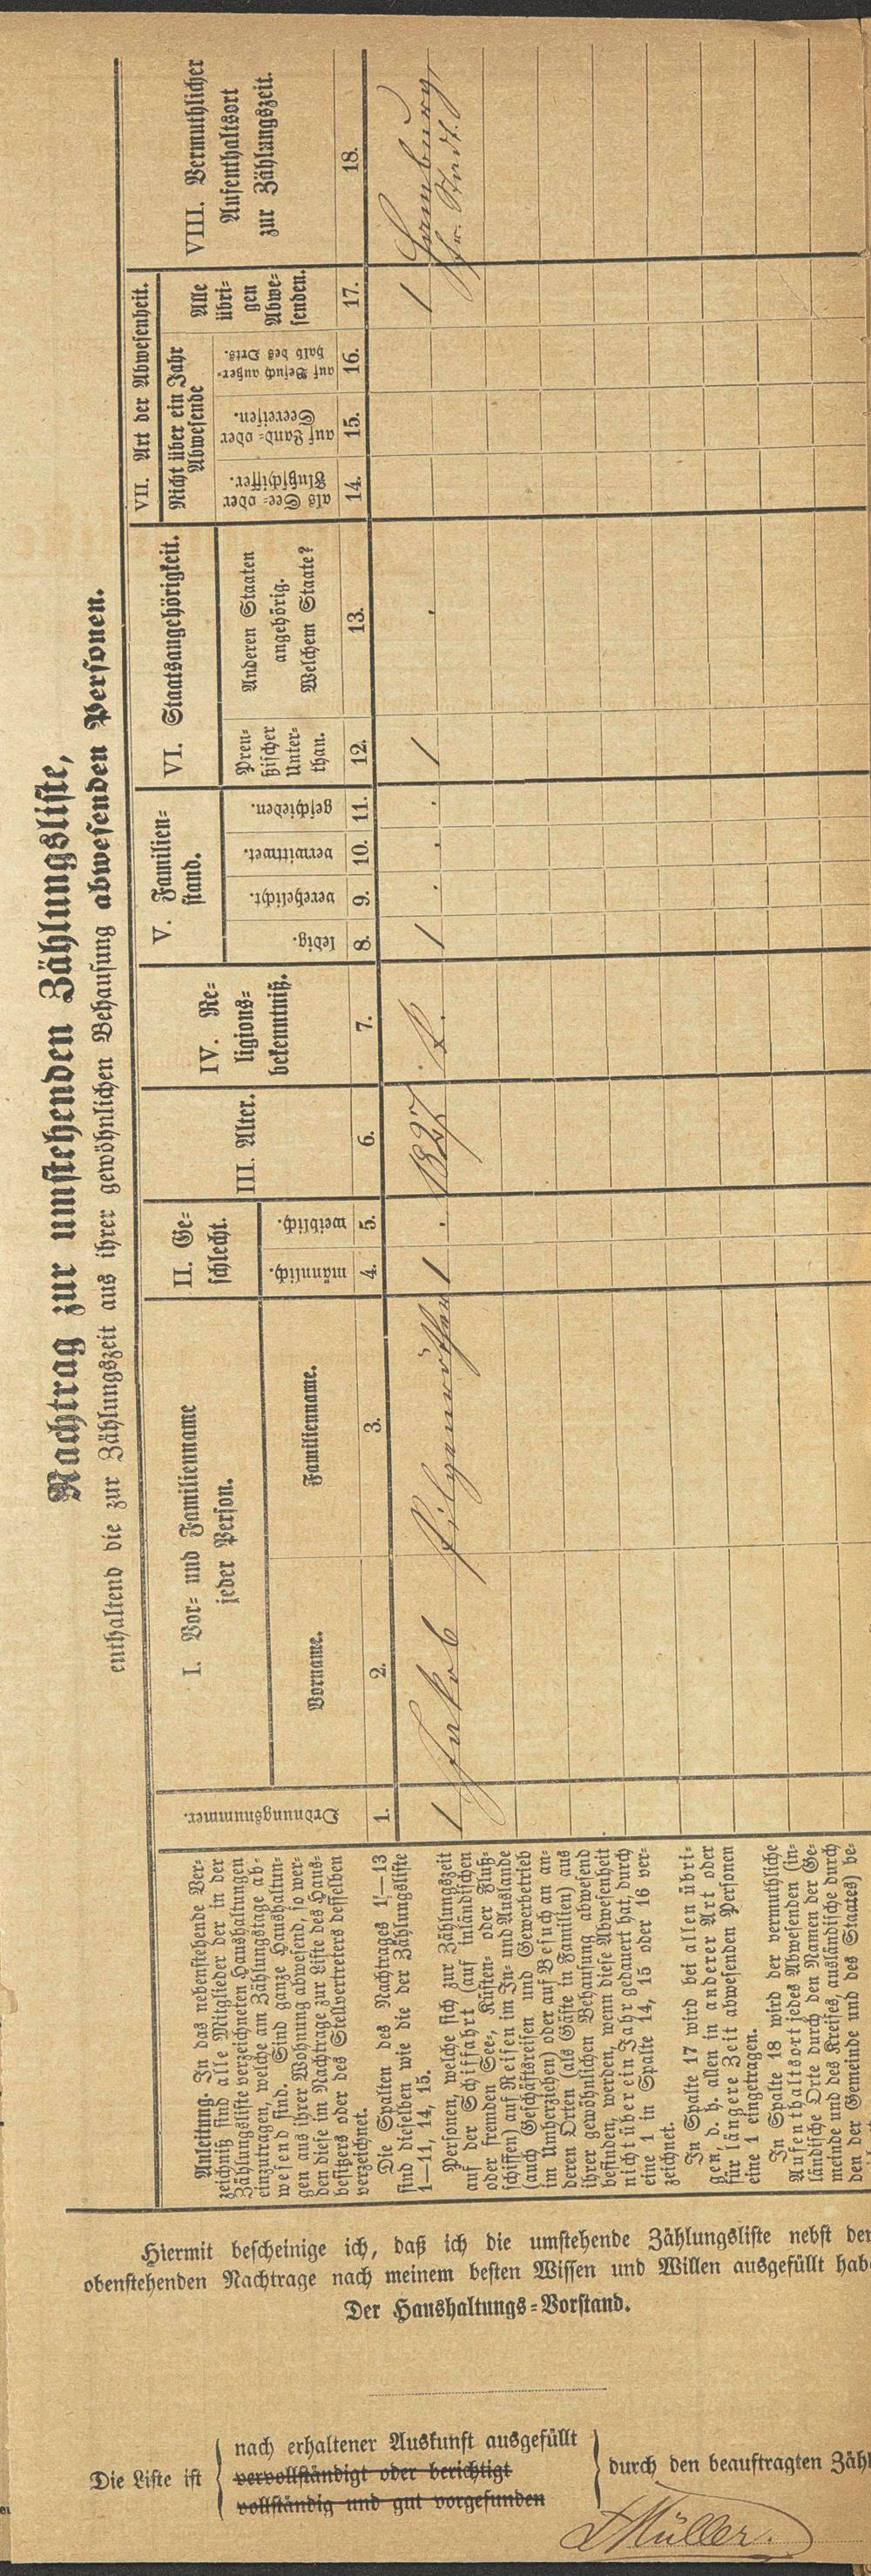 Nachtrag zur umstehenden Zählungsliste,
enthaltend die zur Zählungszeit aus ihrer gewöhnlichen Behausung abwesenden Personen.
Anleitung. In das nebenstehende Ver-
zeichniß sind alle Mitglieder der in der
Zählungsliste verzeichneten Haushaltungen
einzutragen, welche am Zählungstage ab-
wesend sind. Sind ganze Haushaltun-
gen aus ihrer Wohnung abwesend, so wer-
den diese im Nachtrage zur Liste des Haus-
besitzers oder des Stellvertreters desselben
verzeichnet.
Die Spalten des Nachtrages 1–13
sind dieselben wie die der Zählungsliste
1—11, 14, 15.
Personen, welche sich zur Zählungszeit
auf der Schiffahrt (auf inländischen
oder fremden See-, Küsten- oder Fluß-
schiffen) auf Reisen im In- und Auslande
(auch Geschäftsreisen und Gewerbetrieb
im Umherziehen) oder auf Besuch an an-
deren Orten (als Gäste in Familien) aus
ihrer gewöhnlichen Behausung abwesend
befinden, werden, wenn diese Abwesenheit
nicht über ein Jahr gedauert hat, durch
eine 1 in Spalte 14, 15 oder 16 ver-
zeichnet.
In Spalte 17 wird bei allen übri-
gen, d. h. allen in anderer Art oder
für längere Zeit abwesenden Personen
eine 1 eingetragen.
In Spalte 18 wird der vermuthliche
Aufenthaltsort jedes Abwesenden (in-
ländische Orte durch den Namen der Ge-
meinde und des Kreises, ausländische durch
den der Gemeinde und des Staates) be-
Ordnungsnummer.
1.
I. Vor- und Familienname
jeder Person.
Vorname.
2.
Familienname.
3.
II. Ge-
schlecht.
männlich.
4.
weiblich.
5.
III. Alter.
6.
IV. Re-
ligions-
bekenntniß.
7.
V. Familien-
stand.
ledig.
8.
verehelicht.
9.
verwittwet.
10.
geschieden.
11.
VI. Staatsangehörigkeit.
Preu-
ßischer
Unter-
than.
12.
Anderen Staaten
angehörig.
Welchem Staate?
13.
VII. Art der Abwesenheit.
Nicht über ein Jahr
Abwesende
als See- oder
Flußschiffer.
14.
auf Land- oder
Seereisen.
15.
auf Besuch außer-
halb des Orts.
16.
Alle
übri-
gen
Abwe-
senden.
17.
VIII. Vermuthlicher
Aufenthaltsort
zur Zählungszeit.
18.
1 Jakob 1 . 1827 . 1 . . . 1 . 1 Hamburg,
fr. Stadt.
Hiermit bescheinige ich, daß ich die umstehende Zählungsliste nebst der
obenstehenden Nachtrage nach meinem besten Wissen und Willen ausgefüllt hab
Der Haushaltungs-Vorstand.
Die Liste ist
nach erhaltener Auskunft ausgefüllt
vervollständigt oder berichtigt
vollständig und gut vorgefunden
durch den beauftragten Zähl
Müller.